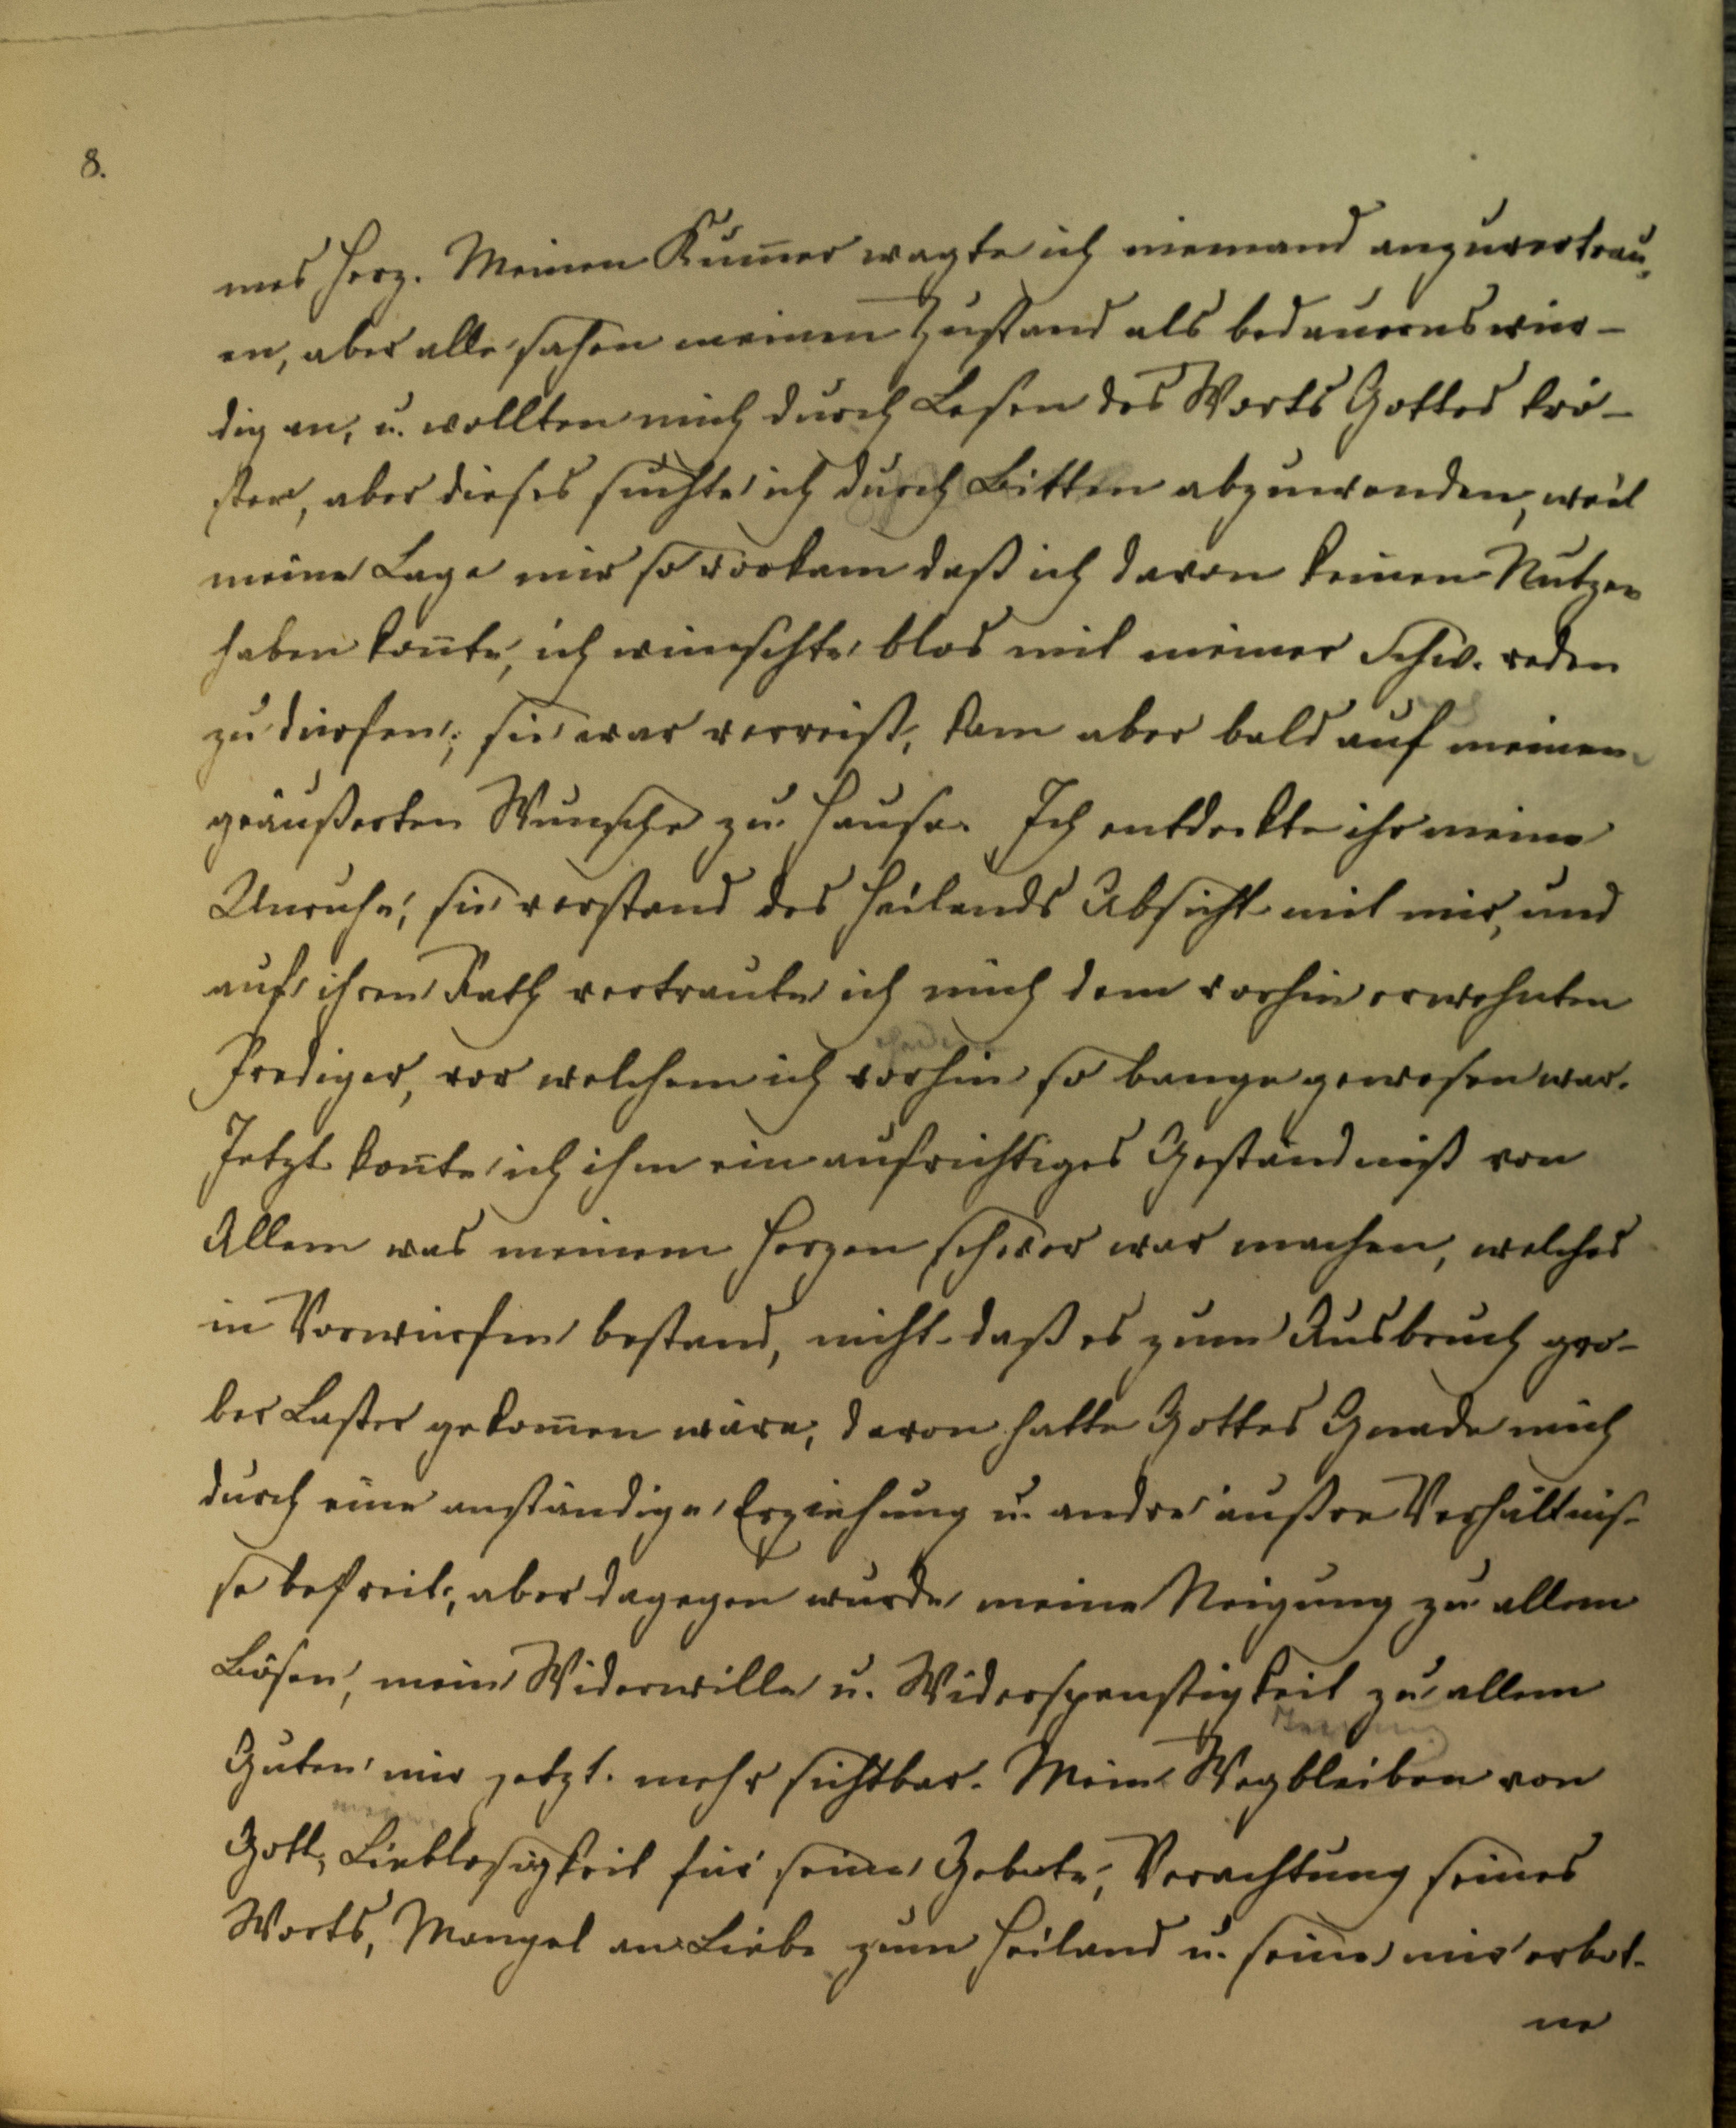 8.
nes Herz. Meinen Kum̅er wagte ich niemand anzuvertrau,
en, aber alle sahen meinen Zustand als bedauernswür-
dig an, u. wollten mich durch Lesen des Worts Gottes trö-
sten, aber dieses suchte ich durch Bitten abzuwenden, weil
meine Lage mir so vorkam daß ich davon keinen Nutzen
haben kon̅te, ich wünschte blos mit meiner Schw. reden
zu dürfen; sie war verreist, kam aber bald auf meinen
geäußerten Wunsche zu Hause. Ich entdeckte ihr meine
Unruhe; sie verstand des Heilands Absicht mit mir, und
auf ihren Rath vertraute ich mich dem vorhin erwehnten
Prediger, vor welchem ich vorhin so bange gewesen war.
Jetzt kon̅te ich ihm ein aufrichtiges Geständniß von
Allem was meinem Herzen schwer war machen, welches
in Vorwürfen bestand, nicht daß es zum Ausbruch gro-
ber Laster gekom̅en wäre, davon hatte Gottes Gnade mich
durch eine anständige Erziehung u. andre äußre Verhältnis-
se befreit; aber dagegen wurde meine Neigung zu allem
Bösen, mein Widerwille u. Widerspenstigkeit zu allem
Guten mir jetzt mehr sichtbar. Mein Wegbleiben von
meine
Gott, Lieblosigkeit für seine Gebote, Verachtung seines
Worts, Mangel an Liebe zum Heiland u. seine mir erbot-
ne